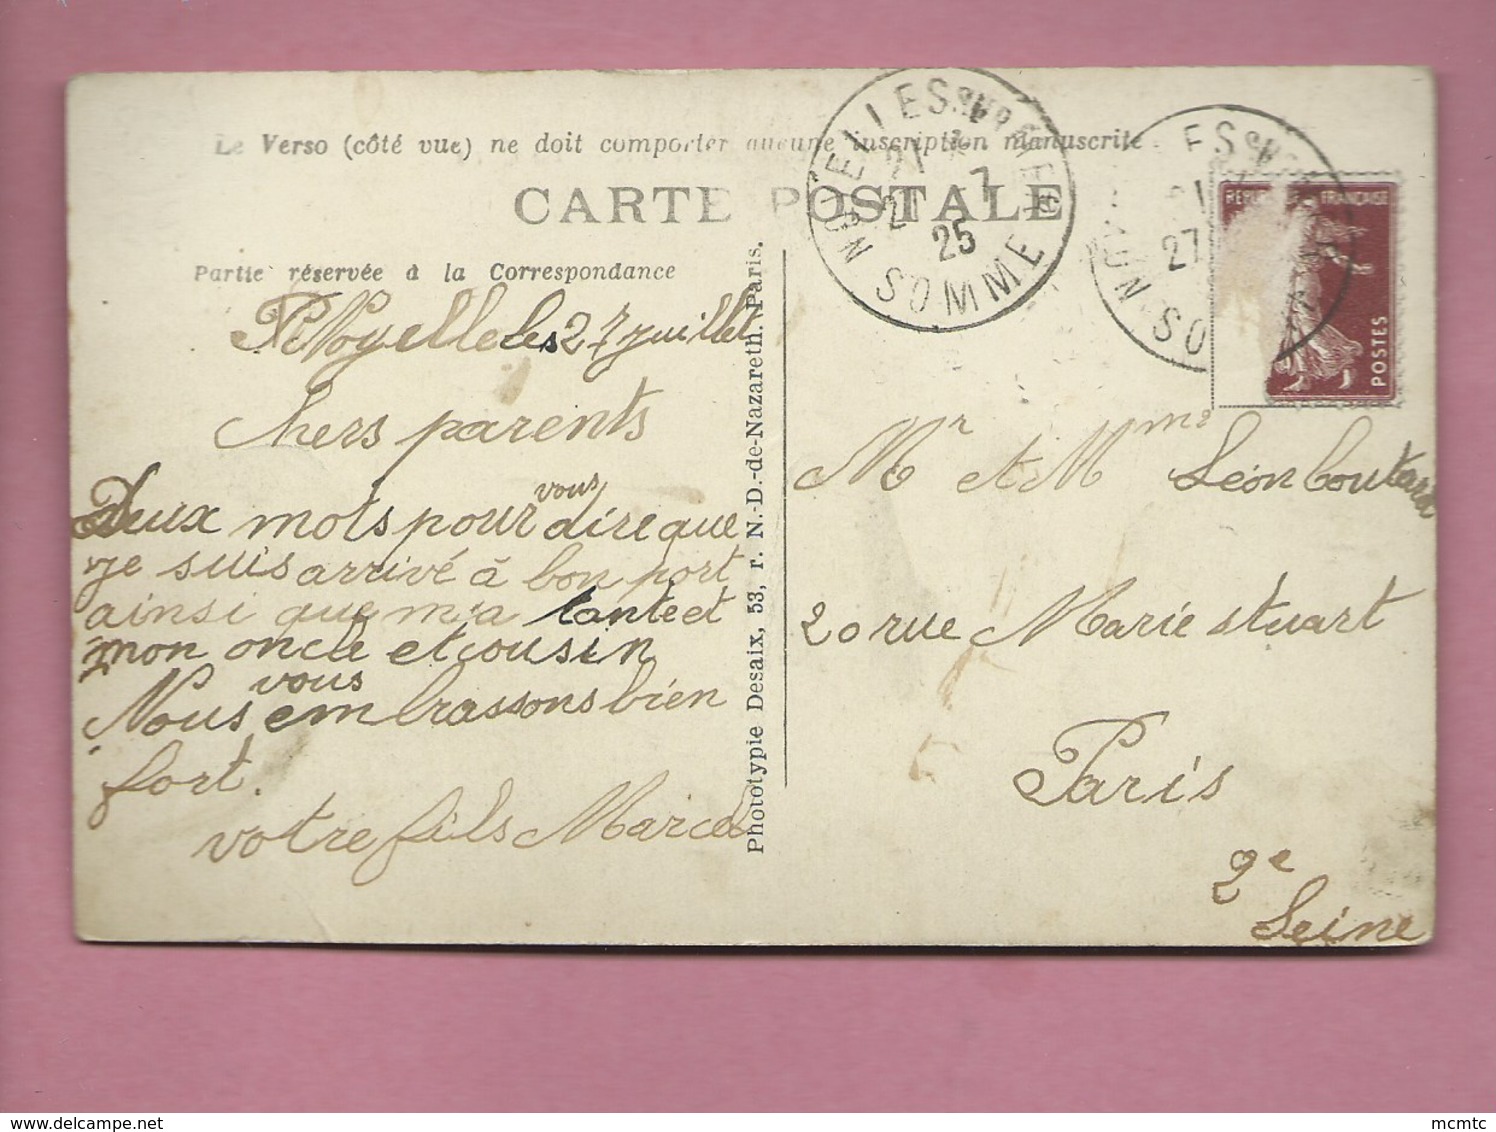 Le Verso (côté vue) ne doit comporter aucune inscription manuscrite
CARTE POSTALE
Partie réservée à la Correspondance
Noyelle les 27 juillet
Chers parents
Deux mots pour vous dire que
je suis arrivé à bon port
ainsi que m'a tante et
mon oncle et cousin
Nous vous embrassons bien
fort.
votre fils Marcel
Phototypie Desaix, 53, r. N.-D.-de-Nazareth. Paris.
NOYELLES SUR MER
21
27 7
25
SOMME
ES SUR
21
27
SO
REPUBLIQUE FRANCAISE
POSTES
Mr et Mme Léon Boutard
20 rue Marie stuart
Paris
2e
Seine
mcmtc